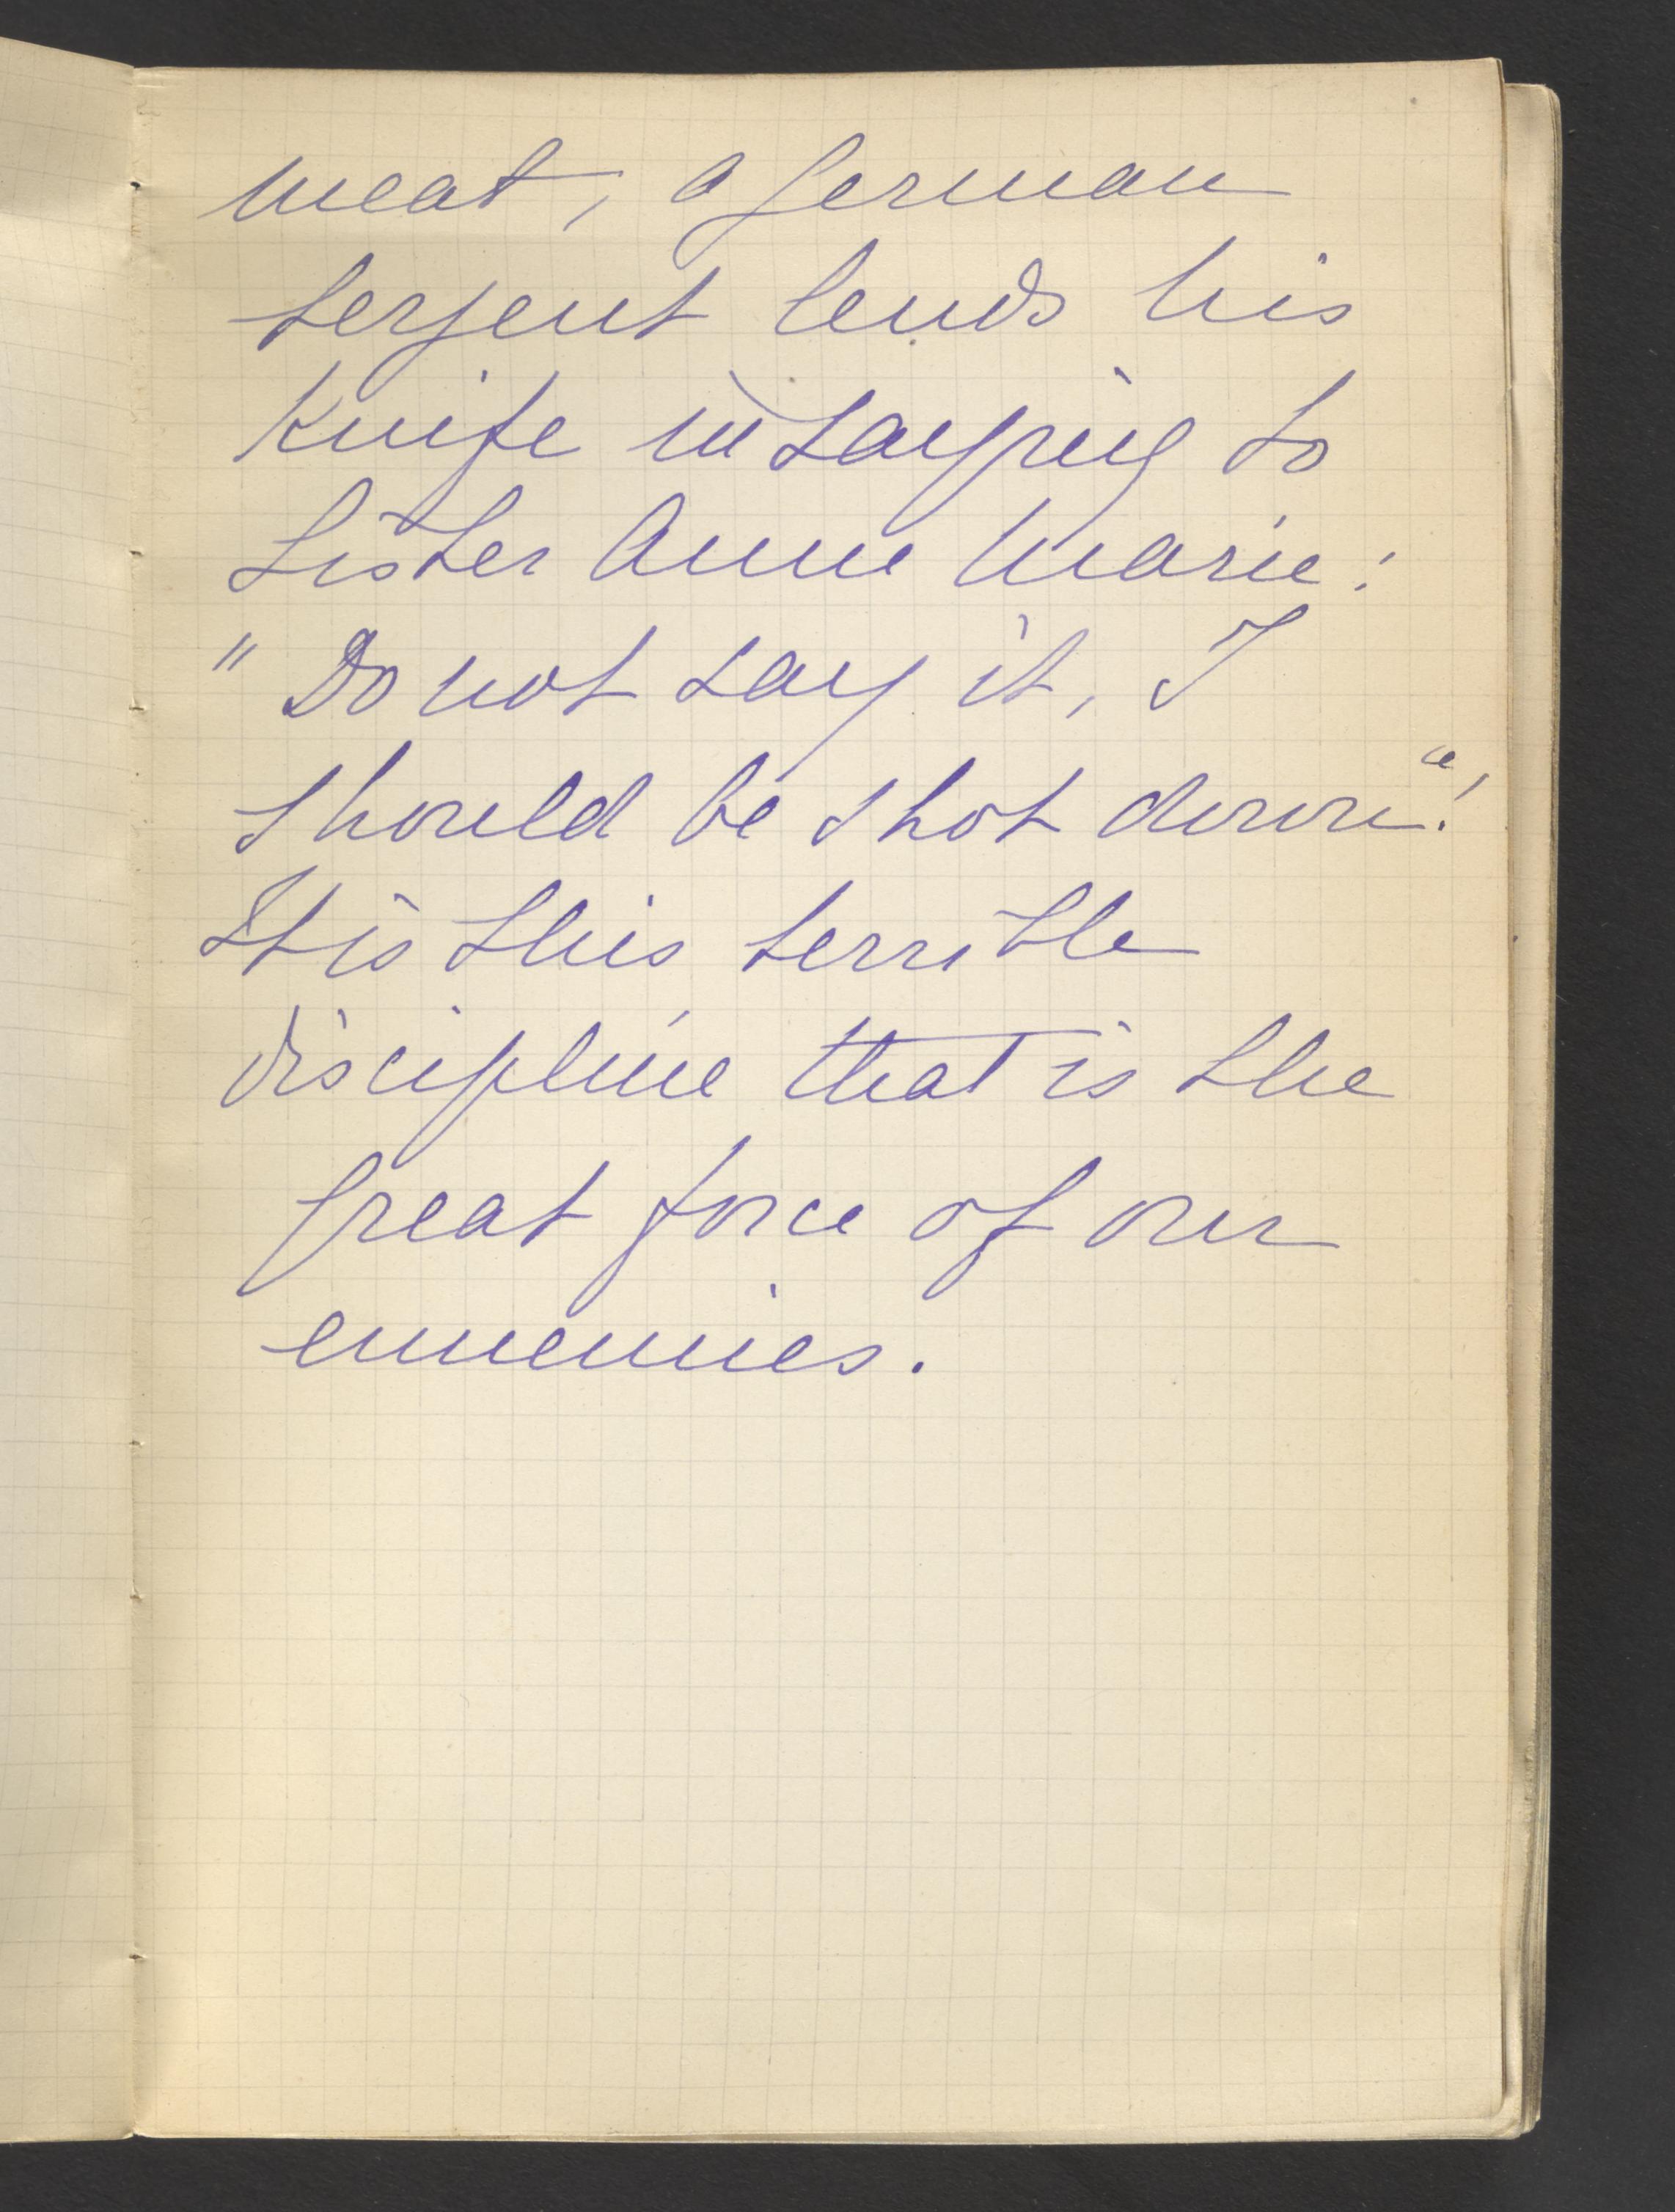 meat, a german
serjent lends his
knife in sayping to
Sister Anne Marie:
" Do not say it, I
should be shot down"!
It is this terrible
discipline that is the
great force of our
ennemies.